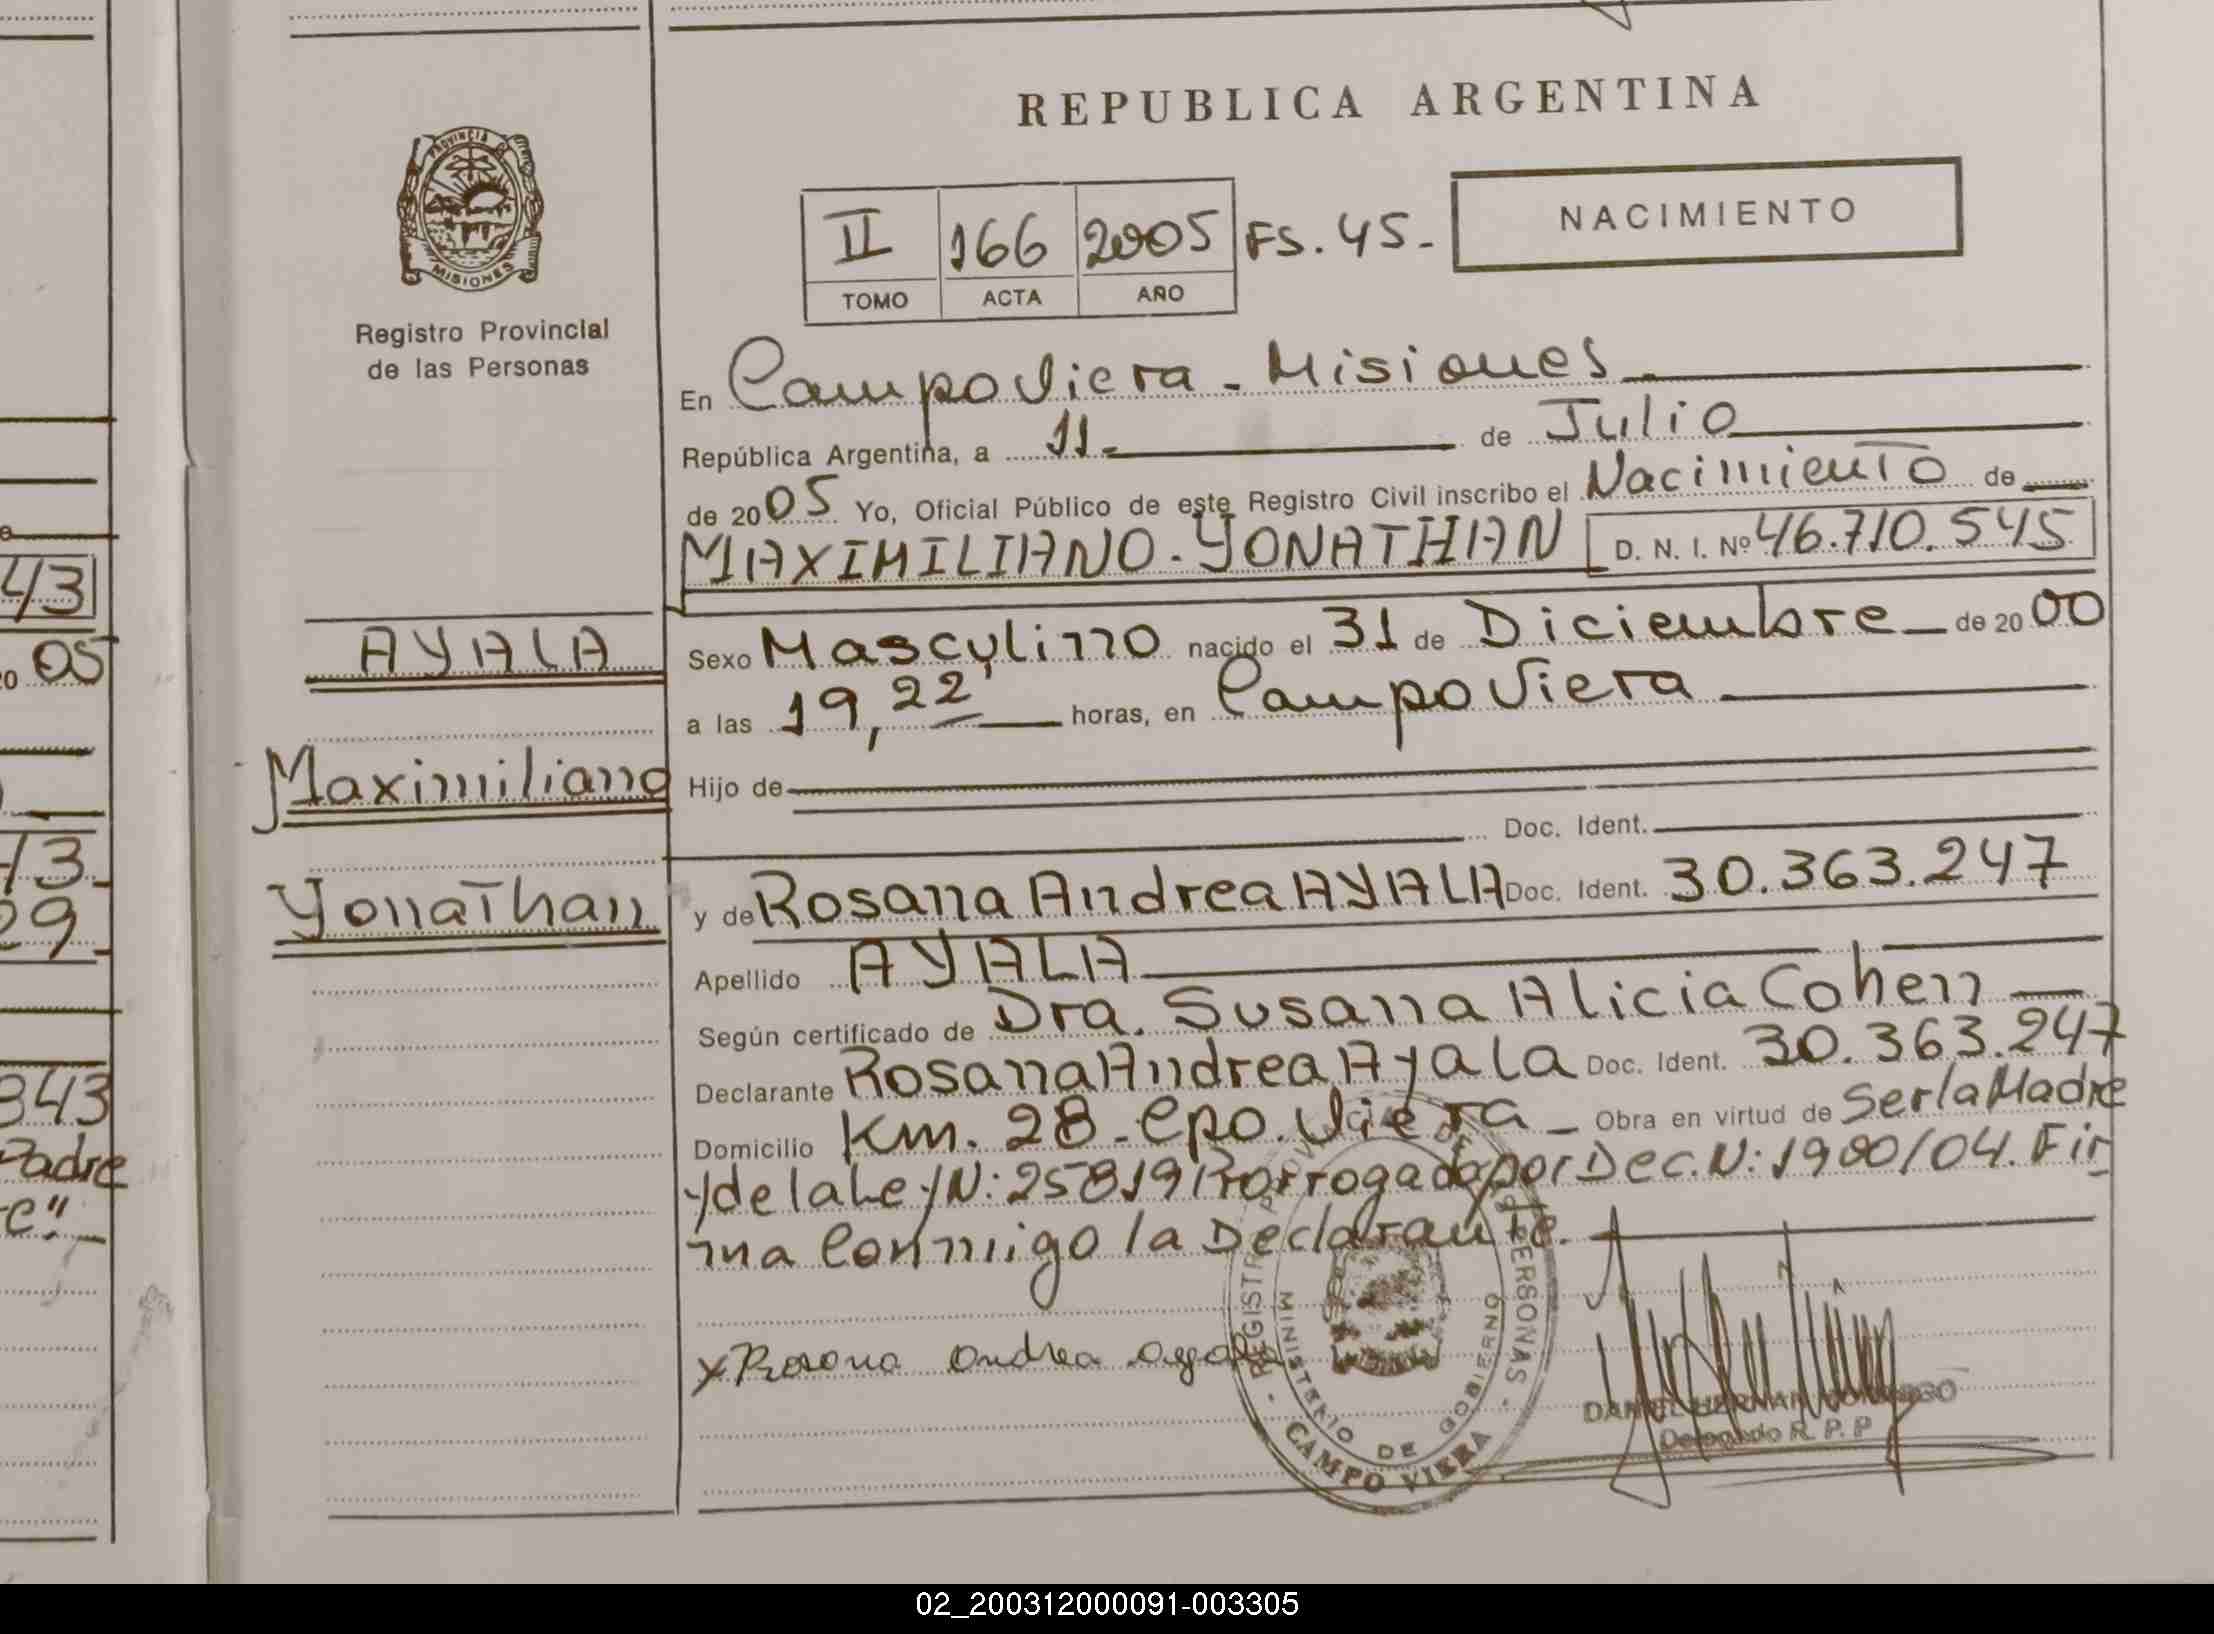 REPUBLICA ARGENTINA
PROVINCIA DE
MISIONES
Registro Provincial
de las Personas
II 166 2005 FS. 45.-
TOMO ACTA AÑO
NACIMIENTO
En Campo Viera - Misiones
República Argentina, a 11- de Julio
de 2005 Yo, Oficial Público de este Registro Civil inscribo el Nacimiento de
MAXIMILIANO - YONATHAN D. N. I. Nº 46.710.545
AYALA
Maximiliano
Yonathan
Sexo Masculino nacido el 31 de Diciembre de 2000
a las 19,22 horas, en Campo Viera
Hijo de
Doc. Ident.
y de Rosana Andrea AYALA Doc. Ident. 30.363.247
Apellido AYALA
Según certificado de Dra. Susana Alicia Cohen
Declarante Rosana Andrea Ayala Doc. Ident. 30.363.247
Domicilio Km. 28 - Cpo. Viera - Obra en virtud de Ser la Madre
y de la Ley N: 25819 Prorrogada por Dec. N: 1980/04. Fir
ma Conmigo la Declarante.
x Rosana Andrea Ayala
REGISTRO PROVINCIAL DE LAS PERSONAS
MINISTERIO DE GOBIERNO
CAMPO VIERA
DANIEL HERNAN
Delegado R. P. P
43
05
13
29
343
Padre
02_200312000091-003305